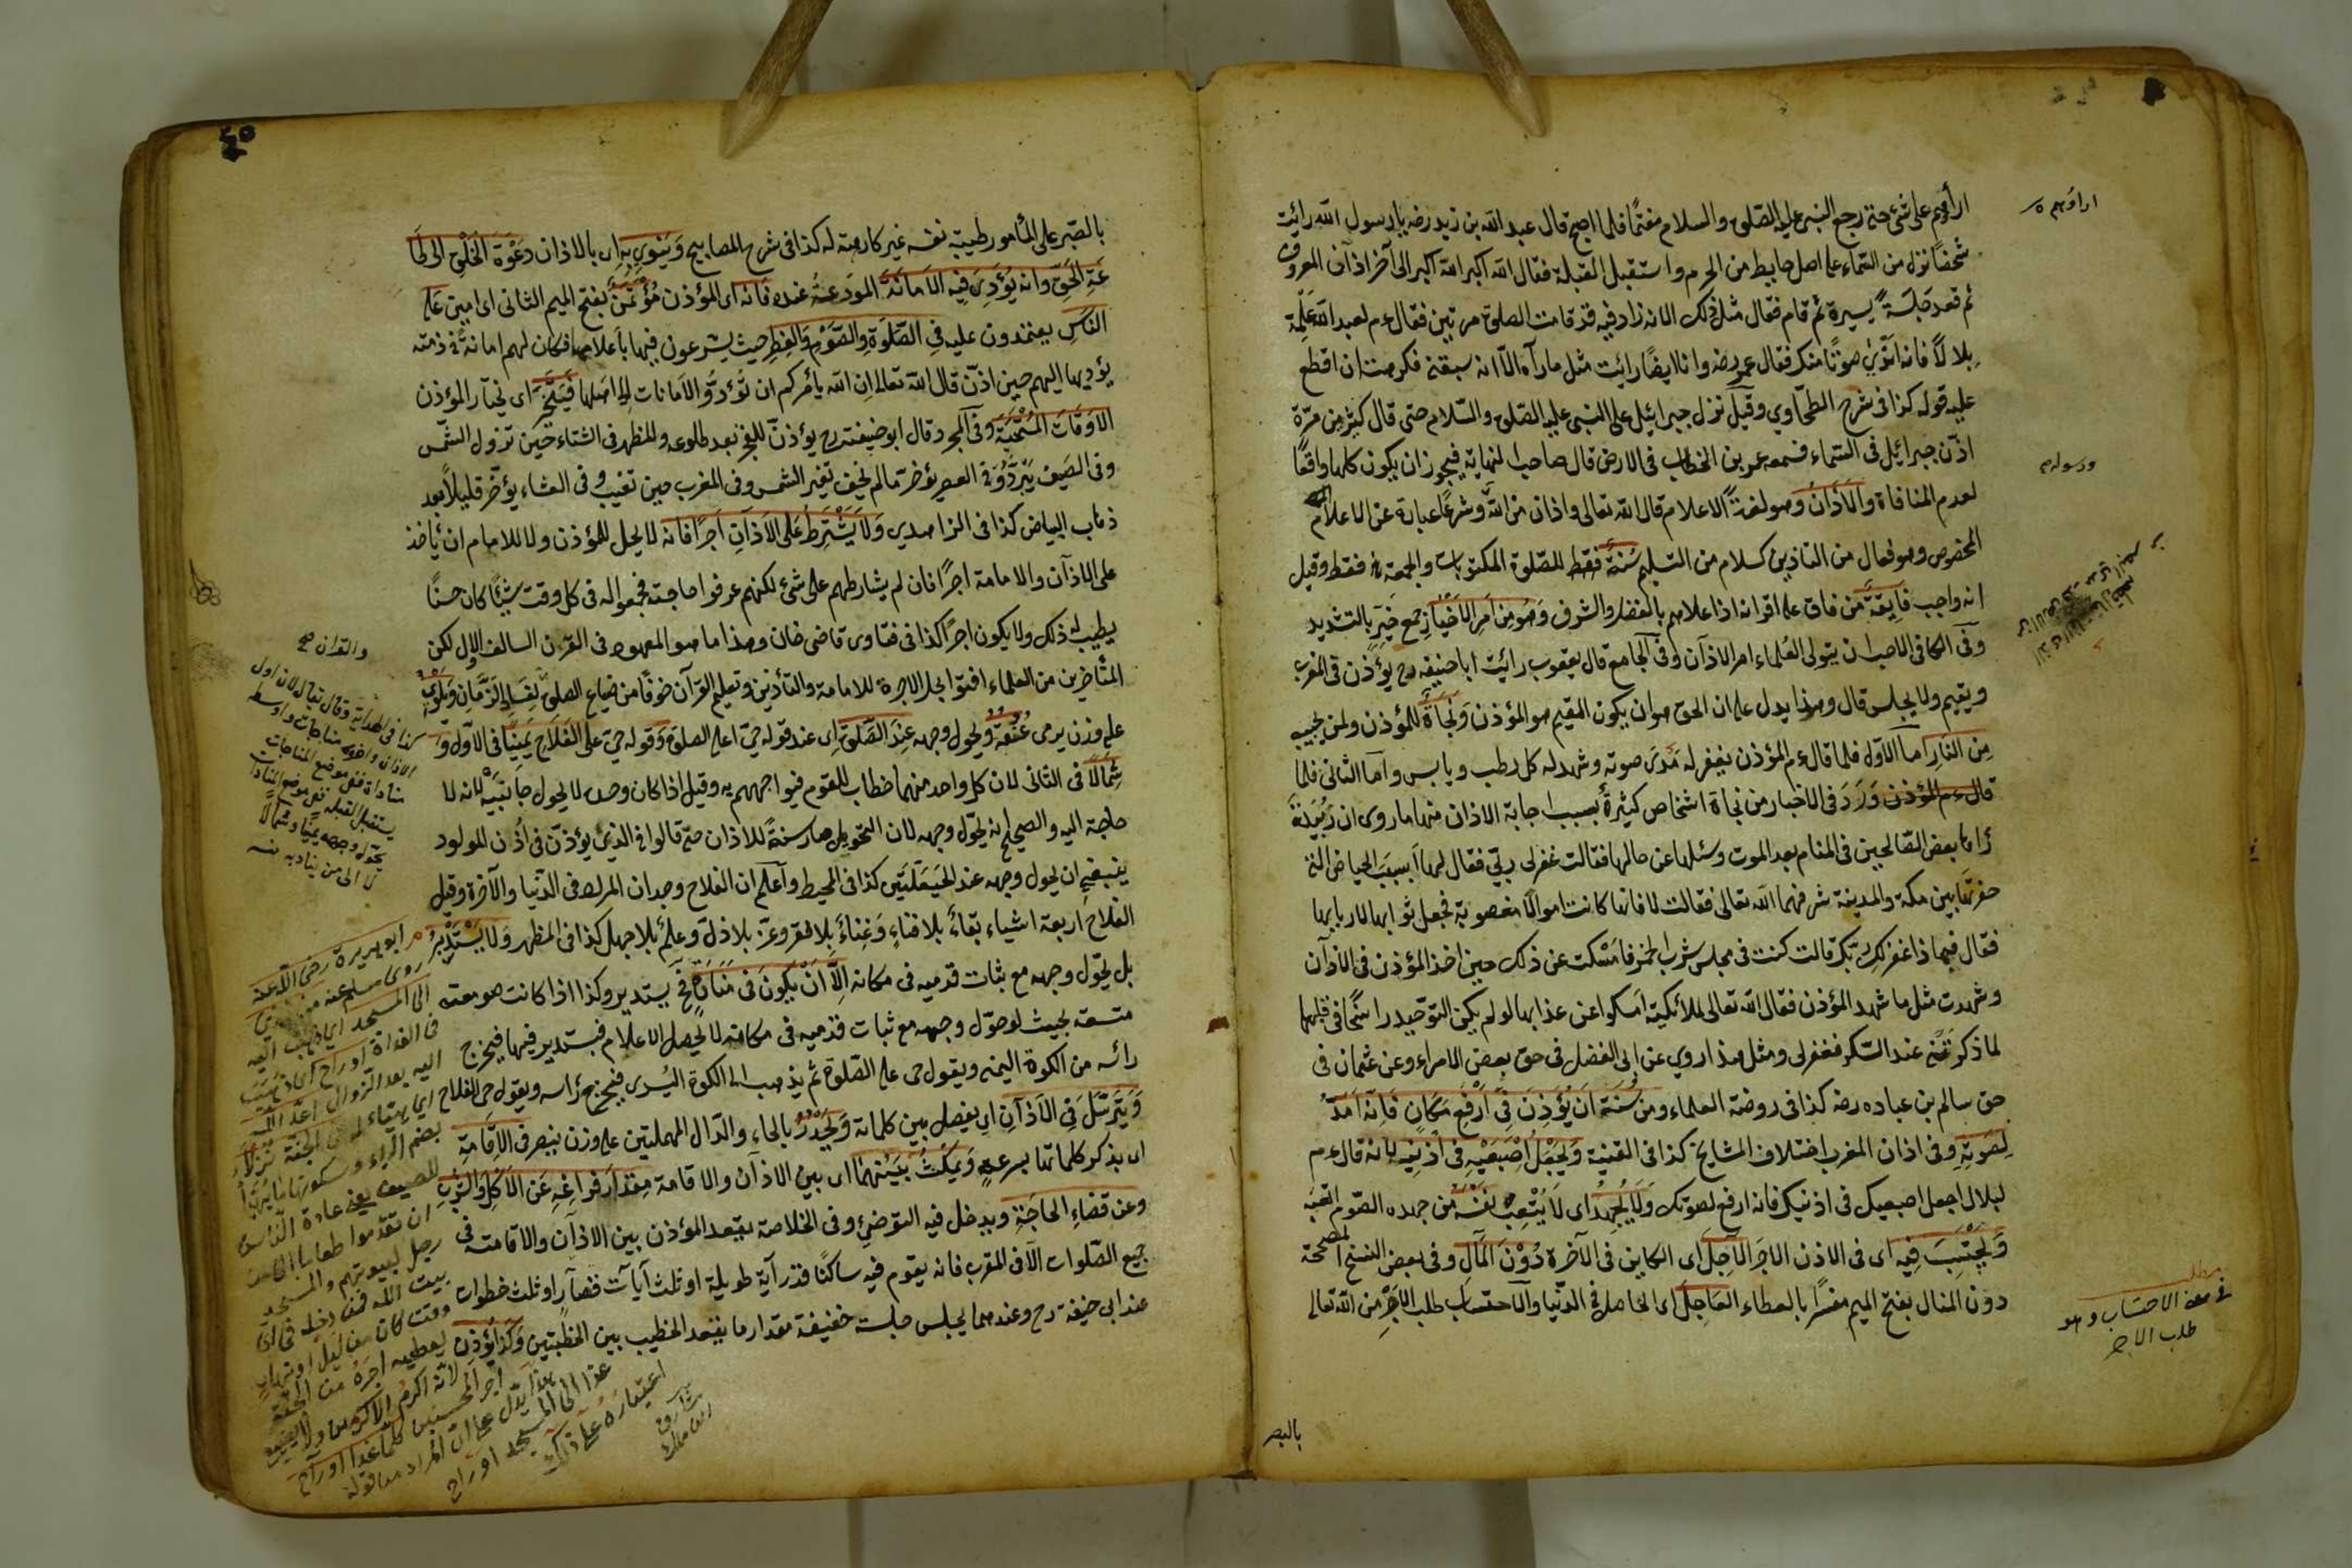 ارأوهم على شئ حتى رجع النبى عليه الصلوة والسلام مغتمًا فلما اصبح قال عبد الله بن زيد رضه يا رسول الله رائيت
شخصًا نزل من السماء على اصل حايط من الحرم واستقبل القبلة فقال الله اكبر الله اكبر الى آخر اذان المعروف
ثم قعد جلسةً يسيرة ثم قام فقال مثل ذلك الا انه زاد فيه قد قامت الصلوة مرتين فقال ءم لعبد الله علّمه
بلالاً فانه اندى صوتًا منك فقال عمر رضه وانا ايضًا رائيت مثل ما رآه الا انه سبقنى فكرهت ان اقطع
عليه قوله كذا فى شرح الطحاوي وقيل نزل جبرائيل على النبى عليه الصلوة والسلام حتى قال كثير من مرّة
اذّن جبرائيل فى السماء فسمعه عمر بن الخطاب فى الارض قال صاحب النهاية فيجوز ان يكون كلها واقعًا
لعدم المنافاة والاذان وهو لغةً الاعلام قال الله تعالى واذان من الله وشرعًا عبارة عن الاعلام
المخصوص وهو فعال من التاذين كسلام من التسليم سنة فقط للصلوة المكتوبات والجمعة فقط وقيل
انه واجب فايقة من فاق على اقرانه اذا علاهم بالفضل والشرف وهو من امر الاخيار جمع خيّر بالتشديد
وفى الكافى الاحب ان يتولى العلماء امر الاذان وفى الجامع قال يعقوب رائيت ابا حنيفه رح يؤذن فى المغرب
ويقيم ولا يجلس قال وهذا يدل على ان الحق هو ان يكون المقيم هو المؤذن ونجاة للمؤذن ولمن يجيبه
من النار اما الاول فلما قال ءم المؤذن يغفر له مدى صوته وشهد له كل رطب ويابس واما الثانى فلما
قال ءم المؤذن ورد فى الاخبار من نجاة اشخاص كثيرة بسبب اجابة الاذان منها ما روى ان زبيدة
رٔاها بعض الصّالحين فى المنام بعد الموت وسئلها عن حالها فقالت غفر لى ربّي فقال لها أبسبب الحياض التى
حفرتها بين مكة والمدينة شرفهما الله تعالى فقالت لا فانها كانت اموالا مغصوبة فجعل ثوابها لاربابها
فقال فبماذا غفر لك ربّك قالت كنت فى مجلس شرب الخمر فامسكت عن ذلك حين اخذ المؤذن فى الاذان
وشهدت مثل ما شهد المؤذن فقال الله تعالى لملائكته امسكوا عن عذابها لو لم يكن التوحيد راسخًا فى قلبها
لما ذكرتنى عند السّكر فغفر لى ومثل هذا روي عن ابى الفضل فى حق بعض الامراء وعن عثمان فى
حق سالم بن عباده رضه كذا فى روضة العلماء ومن سنته ان يؤذن فى ارفع مكان فانه امدّ
لصوته وفى اذان المغرب اختلاف المشايخ كذا فى القنية ويجعل اصبعيه فى اذنيه لانه قال ءم
لبلال اجعل اصبعيك فى اذنيك فانه ارفع لصوتك ولا يجهد اى لا يتعب نفسه من جهده الصّوم اتعبه
ويحتسب فيه اى فى الاذان الاجر الآجل اى الكاين فى الآخرة دون المال وفى بعض النسخ المصححة
دون المنال بفتح الميم مفسرًا بالعطاء العاجل اى الحاصل فى الدّنيا والاحتساب طلب الاجر من الله تعالى
اراؤهم
ورسوله
مطلب
فى معنى الاحتساب وهو
طلب الاجر
بالصبر
٤٥
بالصّبر على المأمور طيبة نفسه غير كارهة له كذا فى شرح المصابيح وينوي به اى بالاذان دعوة الخلق الى طا
عة الحق وانه يؤدى فيه الامانة المودعة عنده فانه اى المؤذن مؤتمن بفتح الميم الثانى اى امين على
الناس يعتمدون عليه فى الصّلوة والصّوم والفطر حيث يشرعون فيها باعلامها فكان لهم امانة فى ذمته
يؤديها اليهم حين اذّن قال الله تعالى ان الله يأمركم ان تؤدّو الامانات الى اهلها فيتخيّر اى يختار المؤذن
الاوقات المستحبة وفى المجرد قال ابو حنيفة رح يؤذن للفجر بعد طلوعه وللظهر فى الشتاء حين تزول الشمس
وفى الصيف يبرّد وفى العصر يؤخر ما لم يخف تغير الشمس وفى المغرب حين تغيب وفى العشاء يؤخر قليلاً بعد
ذهاب البياض كذا فى الزاهدي ولا يشترط على الاذان اجرًا فانه لا يحل للمؤذن ولا للامام ان يأخذ
على الاذان والامامة اجرًا فان لم يشارطهم على شئ لكنهم عرفوا حاجته فجمعوا له فى كل وقت شيئًا كان حسنًا
يطيب له ذلك ولا يكون اجرًا كذا فى فتاوى قاضى خان وهذا ما هو المعهود فى القرن السالف الاول لكن
المتأخرين من العلماء افتوا بحل الاجرة للامامة والتأذين وتعليم القرآن خوفًا من ضياع الصلوة لفساد الزمان ويلوى
على وزن يرمى عنقه ويحول وجهه عند الصّلوة اى عند قوله حى على الصلوة وقوله حى على الفلاح يمينًا فى الاول و
شمالا فى الثانى لان كل واحد منهما خطاب للقوم فيواجههم به وقيل اذا كان وحده لا يحول جانبيه لانه لا
حاجة اليه والصحيح انه يحوّل وجهه لان التحويل صار سنة للاذان حتى قالوا فى الذى يؤذن فى اذن المولود
ينبغى ان يحول وجهه عند الحيعلتين كذا فى المحيط واعلم ان الفلاح وجدان المراد فى الدّنيا والآخرة وقيل
الفلاح اربعة اشياء بقاءٌ بلا فناءٍ وغناءٌ بلا فقر وعزّ بلا ذلّ وعلمٌ بلا جهل كذا فى المظهر ولا يستدير
بل يحوّل وجهه مع ثبات قدميه فى مكانه الّا ان يكون فى منارة فح يستدير وكذا اذا كانت صومعته
متسعة بحيث لو حوّل وجهه مع ثبات قدميه فى مكانه لا يحصل الاعلام فيستدير فيها فيخرج
رأسه من الكوة اليمنى ويقول حى على الصّلوة ثم يذهب الى الكوة اليسرى فيخرج رأسه ويقول حى الفلاح
ويترسّل فى الاذان اي يفصل بين كلماته ويحدر بالحاء والدّال المهملتين على وزن ينصر فى الاقامة
اى يذكر كلماتها بسرعة ويمكث بينهما اى بين الاذان والاقامة مقدار فراغه عن الاكل والشرب
وعن قضاء الحاجة ويدخل فيه التوضئ وفى الخلاصة يقعد المؤذن بين الاذان والاقامة فى
جميع الصّلوات الا فى المغرب فانه يقوم فيه ساكتًا قدر آية طويلة او ثلث آيات قصار او ثلث خطوات
عند ابى حنيفة رح وعندهما يجلس جلسة خفيفة مقدار ما يقعد الخطيب بين الخطبتين وكذا يؤذن
والقران صح
كذا فى الهداية وقال لان اول
الاذان واخره مناجات واوسطه
مناداة ففى موضع المناجات
يستقبل القبلة وفى موضع المناداة
يحوّل وجهه يمينًا وشمالاً
ابو هريرة رضى الله عنه
روى مسلم عنه
الى المسجد